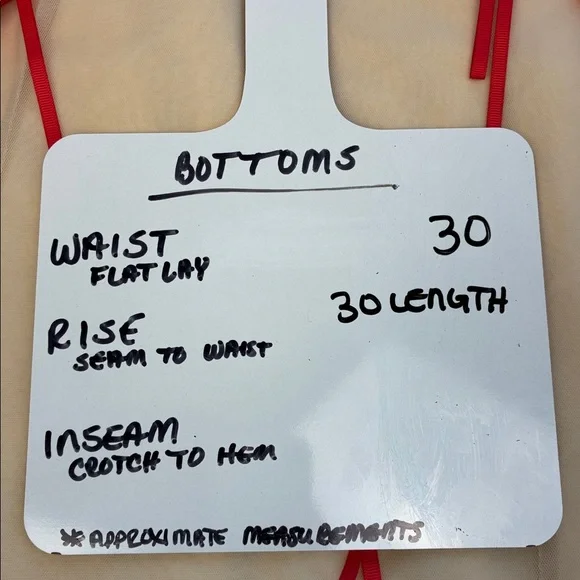 BOTTOMS
WAIST 30
FLAT LAY
30 LENGTH
RISE
SEAM TO WAIST
INSEAM
CROTCH TO HEM
*APPROXIMATE MEASUREMENTS